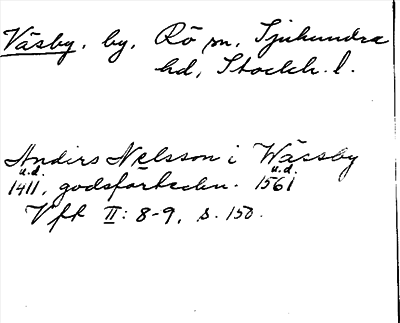 Väsby, by, Rö sn, Sjuhundra
hd, Stockh. l.
Anders Nelsson i Wässby
u.d. u.d.
1411, godsförteckn. 1561
Vft II: 8-9, s. 150.